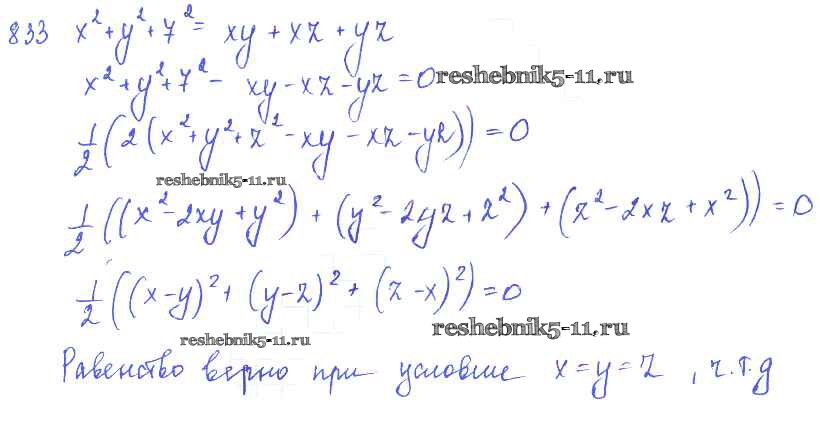 833 x² + y² + 7² = xy + xz + yz
x² + y² + 7² - xy - xz - yz = 0 reshebnik5-11.ru
1/2 (2 (x² + y² + z² - xy - xz - yz)) = 0
reshebnik5-11.ru
1/2 ((x² - 2xy + y²) + (y² - 2yz + z²) + (z² - 2xz + x²)) = 0
1/2 ((x - y)² + (y - z)² + (z - x)²) = 0
reshebnik5-11.ru reshebnik5-11.ru
Равенство верно при условие x = y = z , ч.т.д